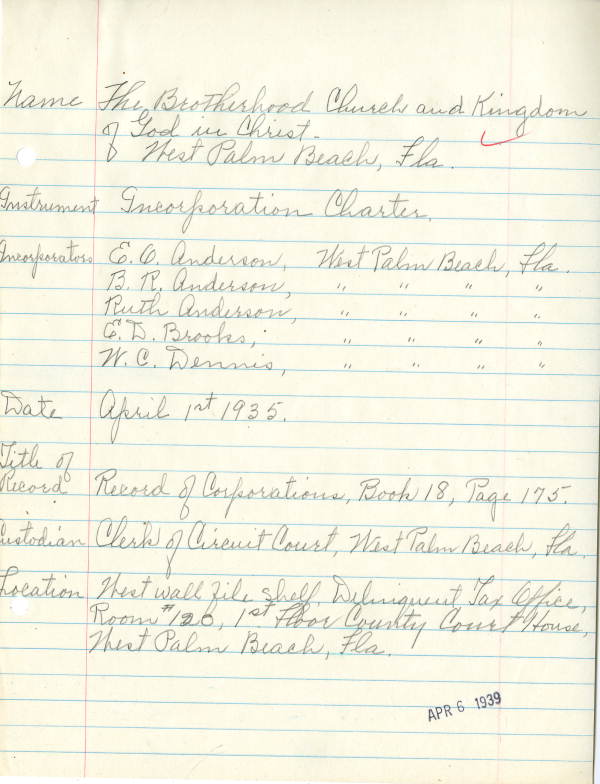 Name The Brotherhood Church and Kingdom
of God in Christ.
West Palm Beach, Fla.
Instrument Incorporation Charter.
Incorporators E. O. Anderson, West Palm Beach, Fla.
B. R. Anderson, " " " "
Ruth Anderson, " " " "
E. D. Brooks, " " " "
W. C. Dennis, " " " "
Date April 1st 1935.
Title of
Record Record of Corporations, Book 18, Page 175.
Custodian Clerk of Circuit Court, West Palm Beach, Fla.
Location West wall file shelf, Delinquent Tax Office,
Room #120, 1st Floor County Court House,
West Palm Beach, Fla.
APR 6 1939